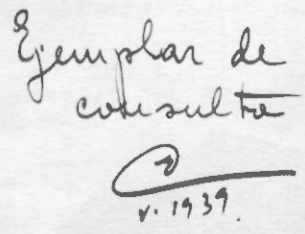 Ejemplar de
consulta
v. 1939.